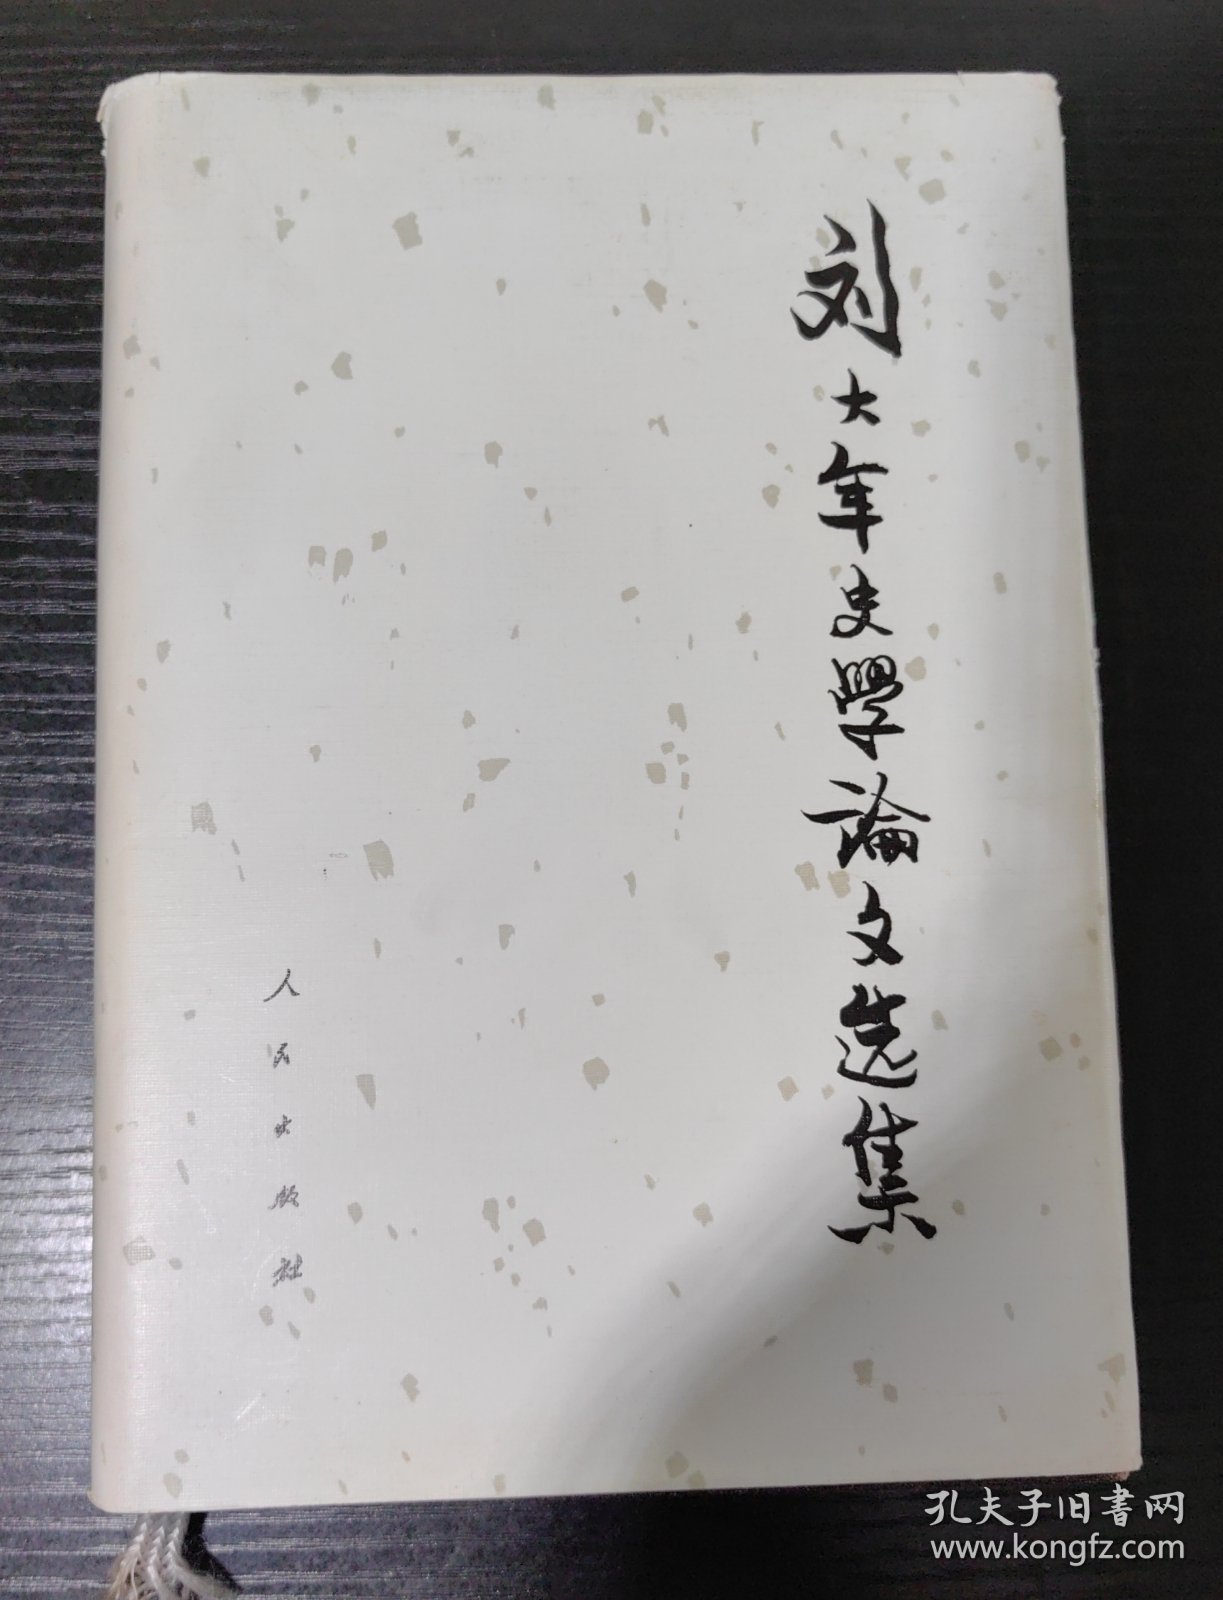 刘大年史學論文选集
人民出版社
孔夫子旧書网
www.kongfz.com